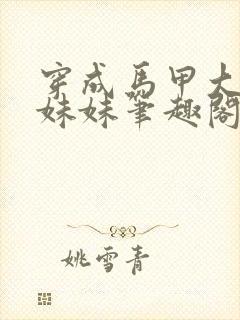 穿成馬甲大
妹妹筆趣閣
姚雪青